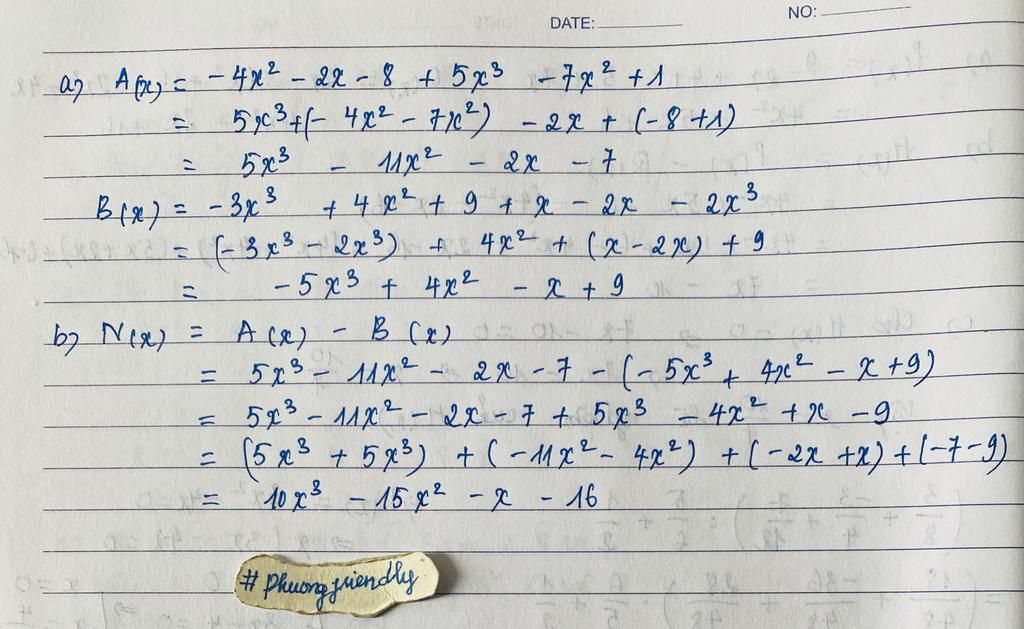 DATE: NO:
a) A(x) = - 4x² - 2x - 8 + 5x³ - 7x² + 1
= 5x³ + (- 4x² - 7x²) - 2x + (-8 + 1)
= 5x³ - 11x² - 2x - 7
B(x) = -3x³ + 4x² + 9 + x - 2x - 2x³
= (-3x³ - 2x³) + 4x² + (x - 2x) + 9
= -5x³ + 4x² - x + 9
b) N(x) = A(x) - B(x)
= 5x³ - 11x² - 2x - 7 - (-5x³ + 4x² - x + 9)
= 5x³ - 11x² - 2x - 7 + 5x³ - 4x² + x - 9
= (5x³ + 5x³) + (-11x² - 4x²) + (-2x + x) + (-7 - 9)
= 10x³ - 15x² - x - 16
#phuongfriendly